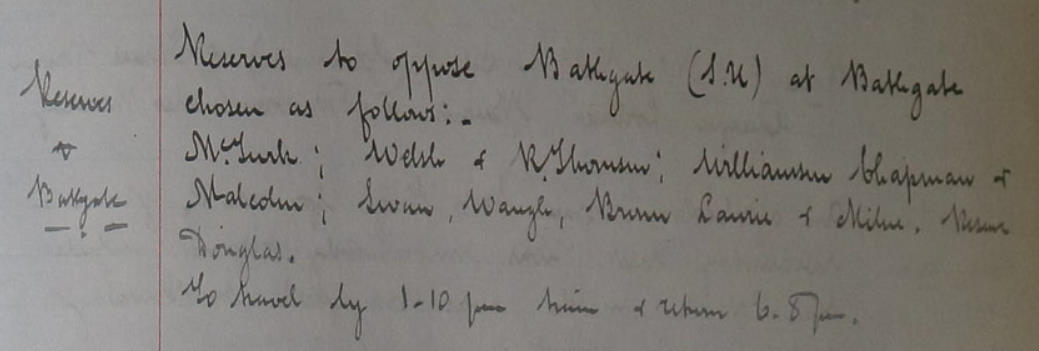 Reserves to oppose Bathgate (S.U) at Bathgate
Reserves
chosen as follows:-
v
McTurk; Welsh & R. Thomson; Williamson Chapman &
Bathgate
Malcolm; Swan, Waugh, Brown Laurie & Milne. Reserve
Douglas.
To travel by 1-10 pm train & return 6-8 pm.